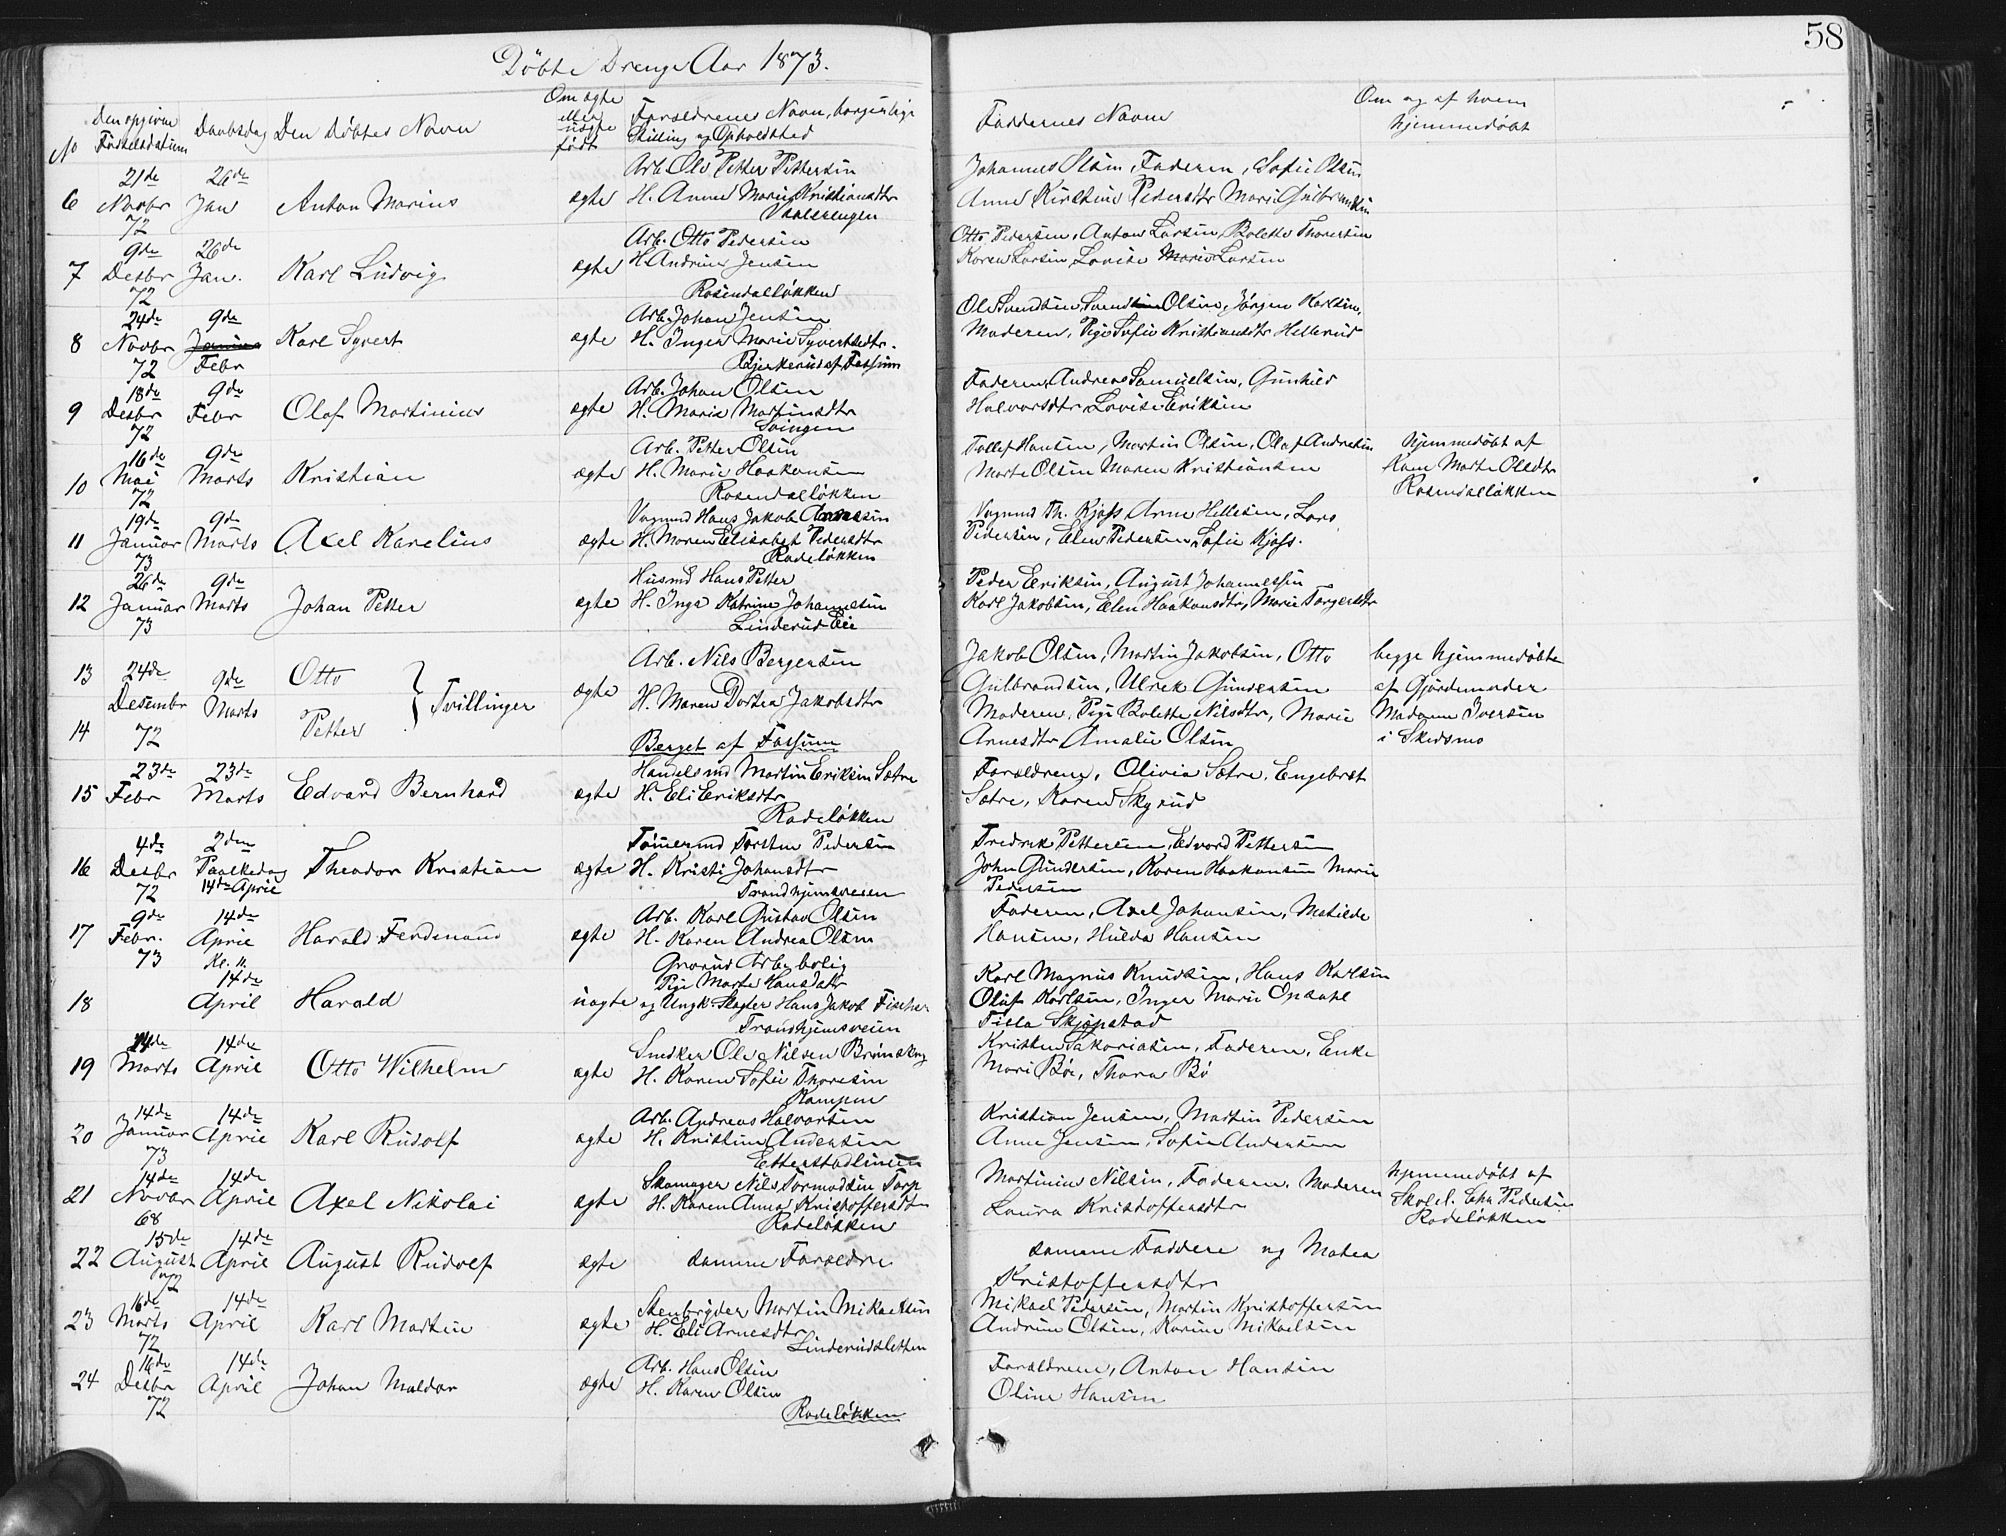 58
Døbte Drenge Aar 1873.
No
Den opgivne Fødselsdatum
Daabsdag
Den Døbtes Navn
Om ægte eller uægte født
Forældrenes Navn, borgerlige Stilling og Opholdsted
Faddernes Navne
Om og af hvem hjemmedøbt
6 21de Novbr 72 26de Jan Anton Marius ægte
Arb. Ole Petter Pettersen
H. Anne Marie Kristiansdtr
Vaalerengen
Johannes Olsen, Faderen, Sofie Olsen
Anne Kirstine Pedersdtr Mari Gulbrandsen
7 9de Desbr 72 26de Jan. Karl Ludvig ægte
Arb. Otto Pedersen
H. Andrine Jensen
Rosendalløkken
Otto Pedersen, Anton Larsen, Bolette Thoresen
Karen Larsen, Lovise Marie Larsen
8 24de Novbr 72 9de Febr Karl Syvert ægte
Arb. Johan Jensen
H. Inger Marie Syvertsdtr.
Bjerkerud af Fossum
Ole Svendsen, Svend Olsen, Jørgen Karlsen,
Moderen, Pige Sofie Kristiansdtr Hellerud
9 18de Desbr 72 9de Febr Olaf Martinius ægte
Arb. Johan Olsen
H. Marie Martinsdtr
Svingen
Faderen, Andreas Samuelsen, Gunhild
Halvorsdtr, Lovise Eriksen
10 16de Mai 72 9de Marts Kristian ægte
Arb. Petter Olsen
H. Marie Haakonsen
Rosendalløkken
Tollef Hansen, Martin Olsen, Olaf Andresen
Marte Olsen Maren Kristiansen
hjemmedøbt af
Kone Marte Olsdtr
Rosendalløkken
11 19de Januar 73 9de Marts Axel Karelius ægte
Vognmd Hans Jakob Arnesen
H. Maren Elisabet Pedersdtr
Rodeløkken
Vognmd Th. Kjøss, Arne Hellesen, Lars
Pedersen, Elen Pedersen, Sofie Kjøss.
12 26de Januar 73 9de Marts Johan Petter ægte
Husmd Hans Petter
H. Inga Katrine Johannesen
Linderud Eie
Peder Eriksen, August Johannessen
Karl Jakobsen, Elen Haakonsdtr, Marie Torgersdtr
13 24de Desembr 72 9de Marts Otto
14 Petter
Tvillinger ægte
Arb. Nils Bergersen
H. Maren Dortea Jakobsdtr
Berget af Fossum
Jakob Olsen, Martin Jakobsen, Otto
Gulbrandsen, Ulrik Gundersen
Moderen, Pige Bolette Nilsdtr, Marie
Arnesdtr Amalie Olsen
begge hjemmedøbte
af Gjordemoder
Madame Iversen
i Skedsmo
15 23de Febr 23de Marts Edvard Bernhard ægte
Handelsmd Martin Eriksen Sætre
H. Eli Eriksdtr
Rodeløkken
Forældrene, Olivia Sætre, Engebret
Sætre, Karen Skyrud
16 4de Desbr 72 2den Paaskedag 14de April Theodor Kristian ægte
Tømermd Torsten Pedersen
H. Kristi Johansdtr
Trondhjemsveien
Fredrik Pettersen, Edvard Pettersen
John Gundersen, Karen Haakonsen Marie
Pedersen
17 9de Febr. 73 14de April Kl. 11 Harald Ferdinand ægte
Arb. Karl Gustav Olsen
H. Karen Andrea Olsen
Grorud Arb. bolig
Faderen, Axel Johansen, Matilde
Hansen, Hulda Hansen
18 14de April Harald uægte
Pige Marte Hansdtr
og Ungk. Slagter Hans Jakob Fischer
Trondhjemsveien
Karl Magnus Knudsen, Hans Karlsen
Oluf Karlsen, Inger Marie Opdahl
Tilla Skjøpstad
19 Marts 14de April Otto Wilhelm ægte
Snedker Ole Nilsen Brønskog
H. Karen Sofie Thoresen
Kampen
Kristen Sakariasen, Faderen, Enke
Mari Bøe, Thora Bø
20 14de Januar 73 14de April Karl Rudolf ægte
Arb. Andreas Halvorsen
H. Kristine Andersen
Etterstadlinien
Kristian Jensen, Martin Pedersen
Anne Jensen, Sofie Andersen
21 14de Novbr 68 14de April Axel Nikolai ægte
Skomager Nils Tormodsen Torp
H. Karen Anna Kristoffersdtr
Rodeløkken
Martinius Nilsen, Faderen, Moderen
Laura Kristoffersdtr
hjemmedøbt af
Skoel. Ehr Pedersen
Rodeløkken
22 15de August 72 14de April August Rudolf ægte
samme Forældre
samme Faddere og Matea
Kristoffersdtr
23 16de Marts 72 14de April Karl Martin ægte
Stenbryder Martin Mikaelsen
H. Eli Arnesdtr
Linderudsletten
Mikael Pedersen, Martin Kristoffersen
Andrine Olsen, Karine Mikaelsen
24 16de Desbr 72 14de April Johan Maldor ægte
Arb. Hans Olsen
H. Karen Olsen
Rodeløkken
Forældrene, Anton Hansen
Oline Hansen